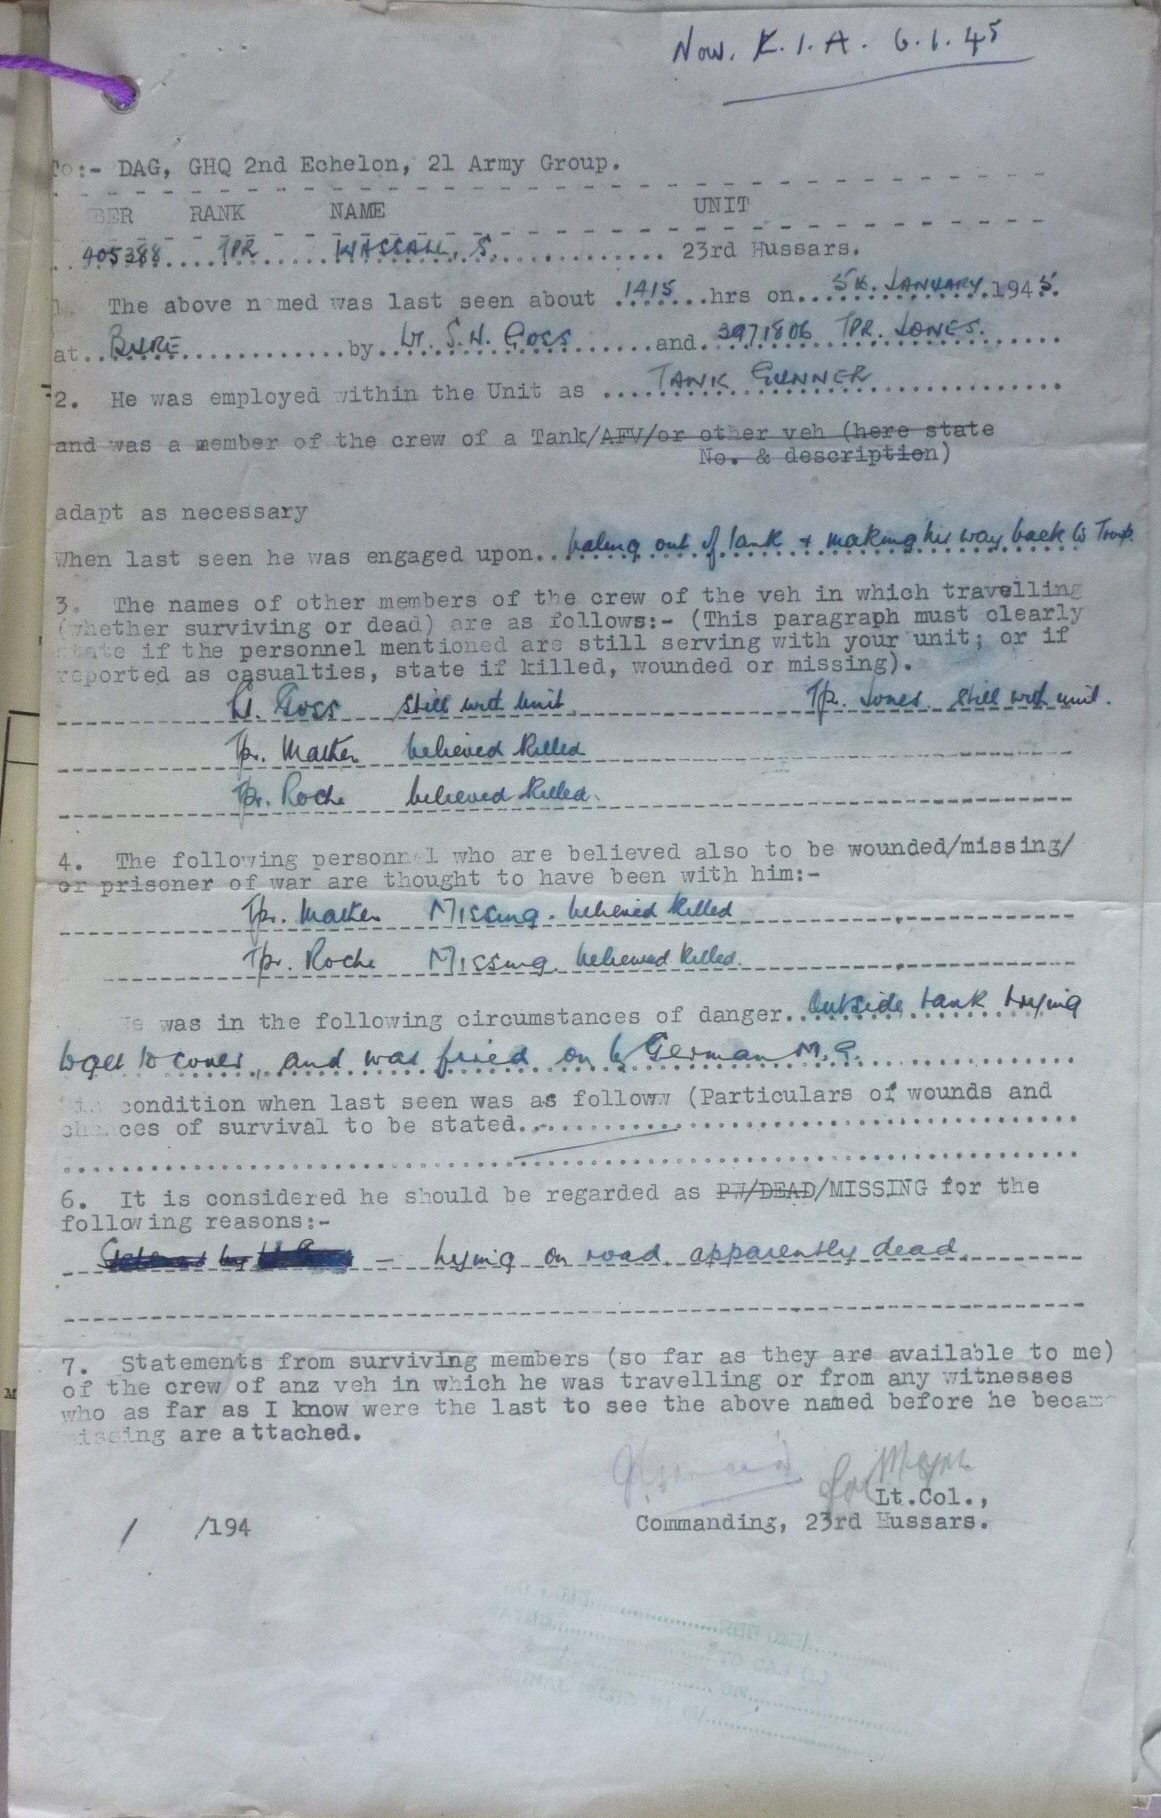 Now. K.I.A. 6.1.45
To:- DAG, GHQ 2nd Echelon, 21 Army Group.
BER RANK NAME UNIT
405388 TPR WASSALL, S. 23rd Hussars.
1. The above n med was last seen about 1415 hrs on 5th. JANUARY 1945.
at BURE by Lt. S.H. Goss and 3971806 TPR. JONES.
2. He was employed within the Unit as TANK GUNNER
and was a member of the crew of a Tank/AFV/or other veh (here state
No. & description)
adapt as necessary
When last seen he was engaged upon baling out of tank & making his way back to Troop.
3. The names of other members of the crew of the veh in which travelling
(whether surviving or dead) are as follows:- (This paragraph must clearly
state if the personnel mentioned are still serving with your unit; or if
reported as casualties, state if killed, wounded or missing).
Lt. Goss still with Unit. Tpr. Jones still with unit.
Tpr. believed killed
Tpr. Roche believed killed.
4. The following personnel who are believed also to be wounded/missing/
or prisoner of war are thought to have been with him:-
Tpr. Missing. believed killed
Tpr. Roche Missing. believed killed.
He was in the following circumstances of danger. Outside tank trying
to get to cover, and was fired on by German M.G.
is condition when last seen was as followw (Particulars of wounds and
chances of survival to be stated..-
6. It is considered he should be regarded as PW/DEAD/MISSING for the
following reasons:-
- lying on road apparently dead
7. Statements from surviving members (so far as they are available to me)
of the crew of anz veh in which he was travelling or from any witnesses
who as far as I know were the last to see the above named before he became
missing are attached.
for Major
Lt.Col.,
/ /194 Commanding, 23rd Hussars.